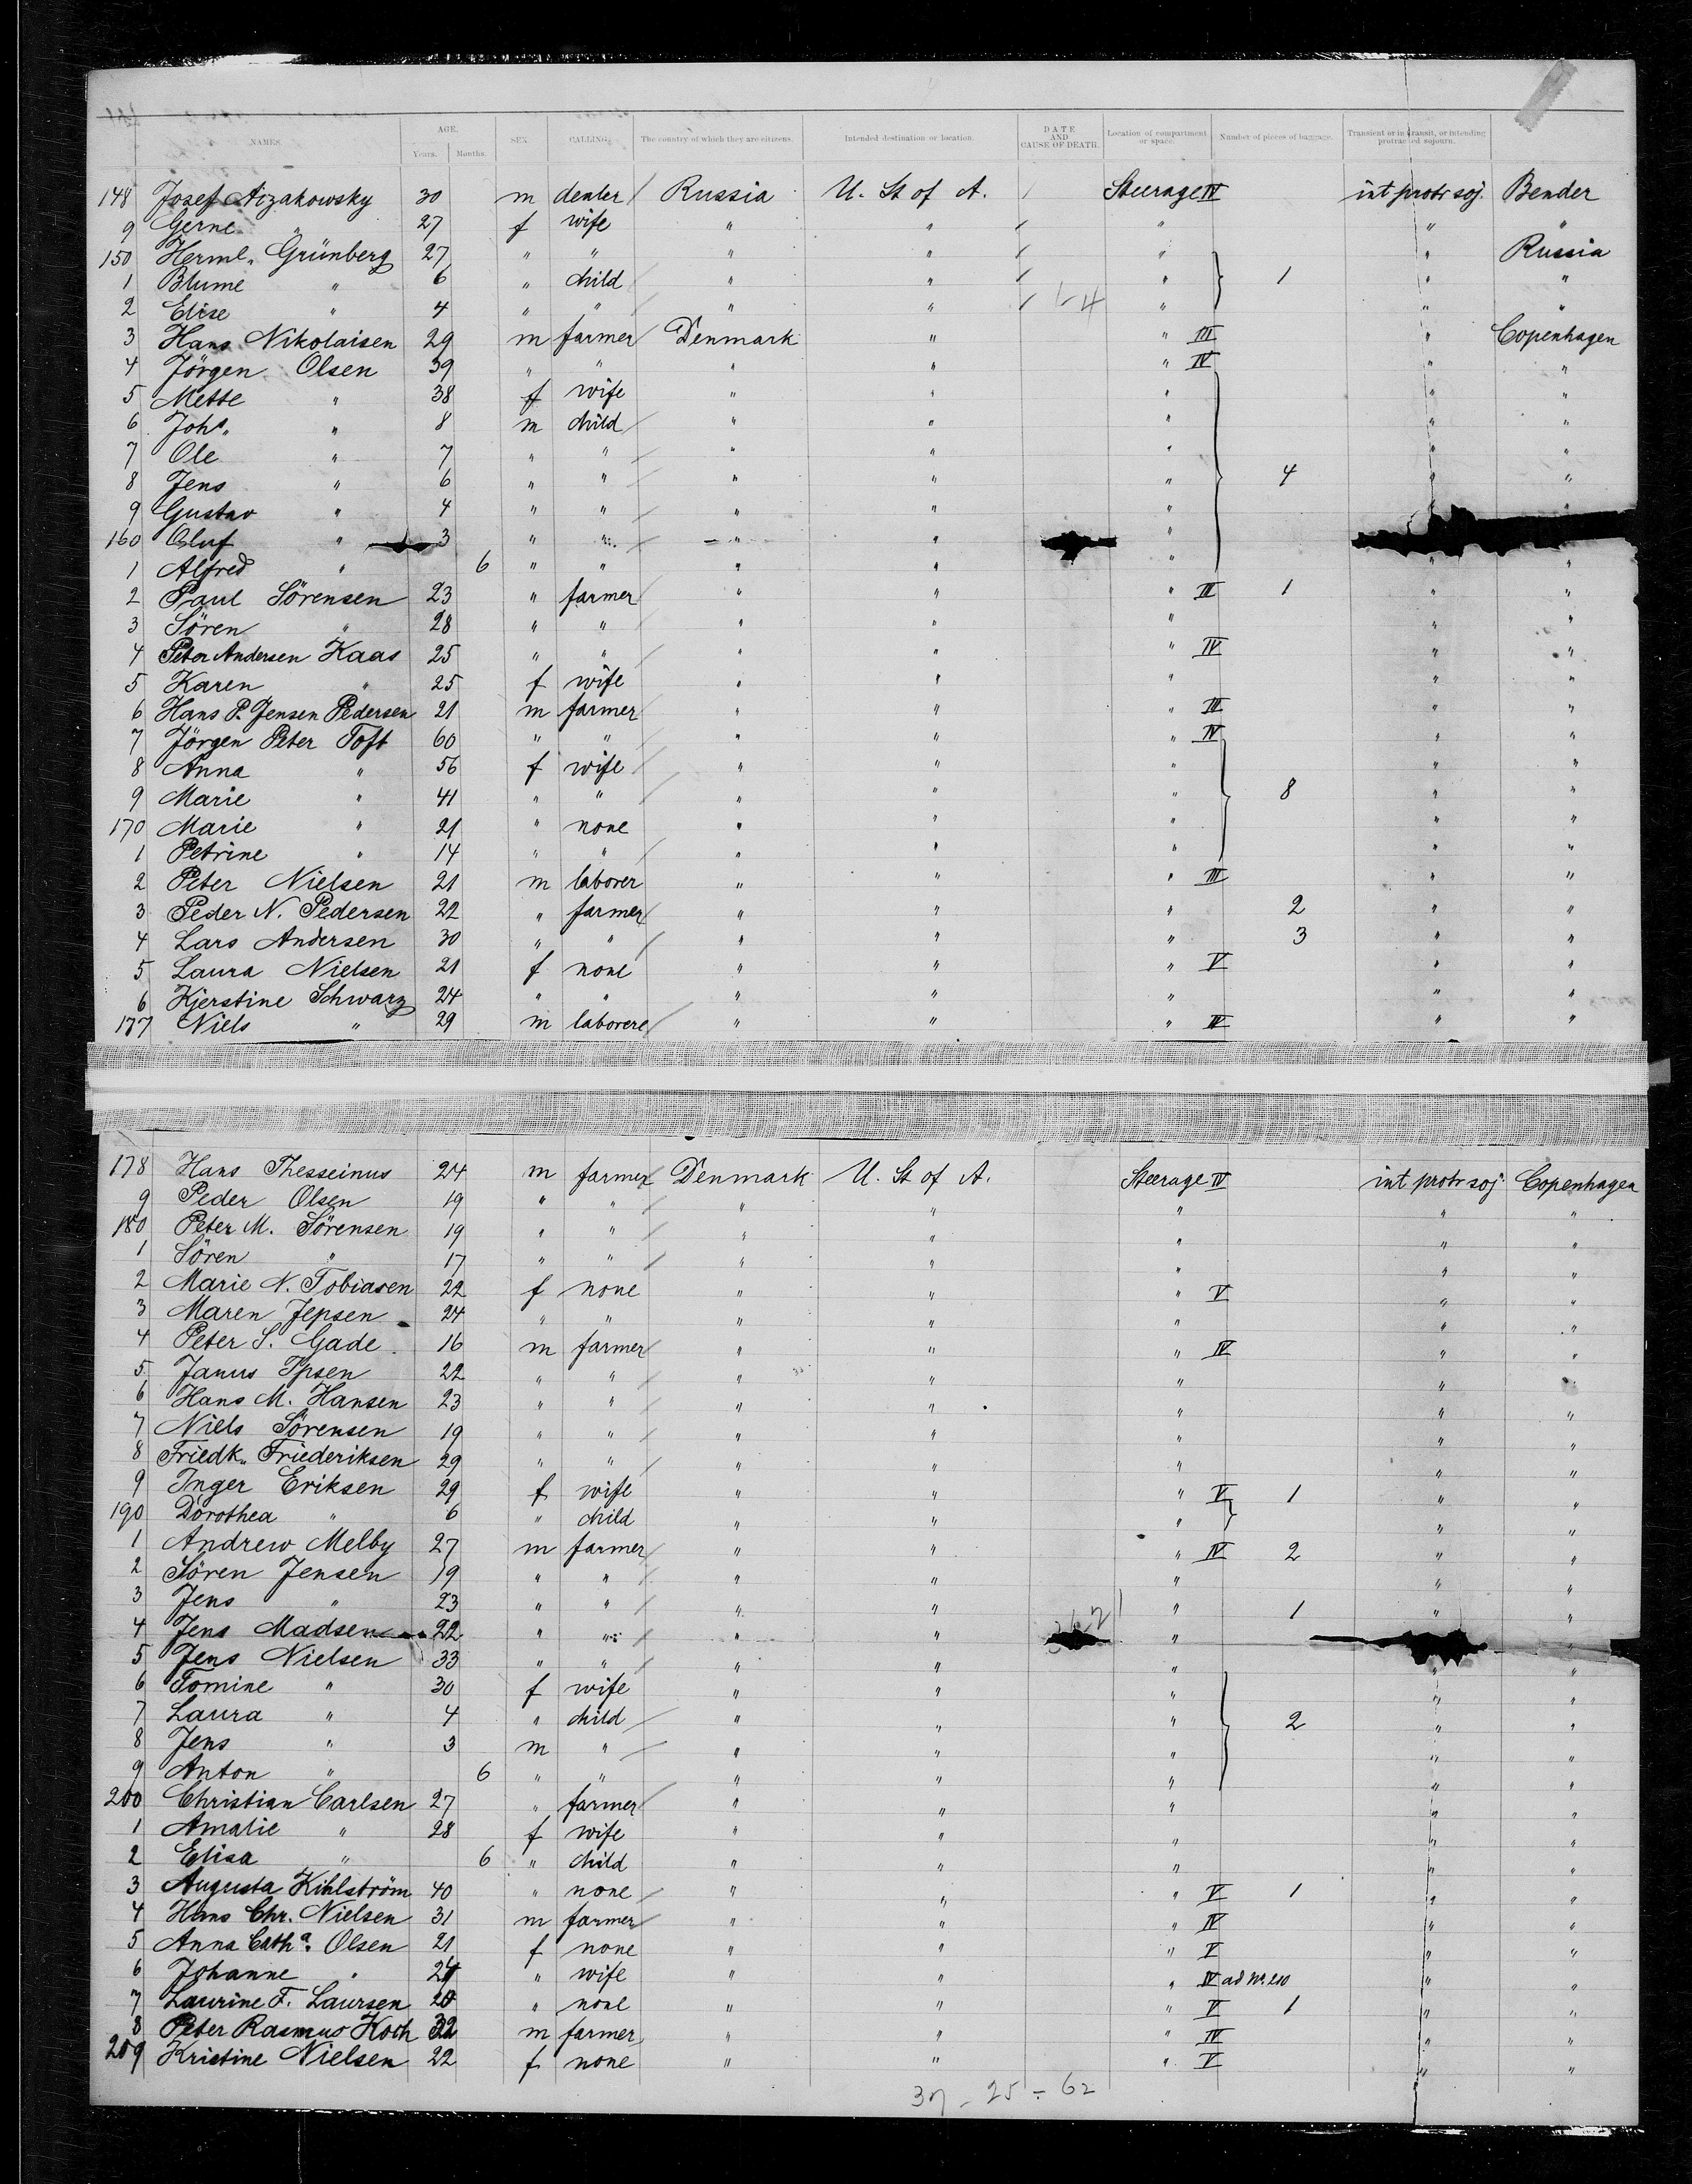 NAMES. AGE. Years. Months. SEX. CALLING. The country of which they are citizens. Intended destination or location. DATE AND CAUSE OF DEATH. Location of compartment or space. Number of pieces of baggage. Transient or in transit, or intending protracted sojourn.
148 Josef Aizakowsky 30 m dealer Russia U. St of A. Steerage IV int protr soj. Bender
9 Gerne " 27 f wife " " " " "
150 Herml. Grünberg 27 " " " " " " Russia
1 Blume " 6 " child " " " 1 " "
2 Elise " 4 " " " " 4 " " "
3 Hans Nikolaisen 29 m farmer Denmark " " III " Copenhagen
4 Jörgen Olsen 39 " " " " " IV " "
5 Mette " 38 f wife " " " " "
6 Johs. " 8 m child " " " " "
7 Ole " 7 " " " " " " "
8 Jens " 6 " " " " " 4 " "
9 Gustav " 4 " " " " " " "
160 Oluf " 3 " " " " "
1 Alfred " 6 " " " " " " "
2 Paul Sörensen 23 " farmer " " " III 1 " "
3 Sören " 28 " " " " " " "
4 Peter Andersen Kaas 25 " " " " " IV " "
5 Karen " 25 f wife " " " " "
6 Hans P. Jensen Pedersen 21 m farmer " " " III " "
7 Jörgen Peter Toft 60 " " " " " IV " "
8 Anna " 56 f wife " " " " "
9 Marie " 41 " " " " " 8 " "
170 Marie " 21 " none " " " " "
1 Petrine " 14 " " " " " " "
2 Peter Nielsen 21 m laborer " " " III " "
3 Peder N. Pedersen 22 " farmer " " " 2 " "
4 Lars Andersen 30 " " " " " 3 " "
5 Laura Nielsen 21 f none " " " V " "
6 Kjerstine Schwarz 24 " " " " " " "
177 Niels " 29 m laborere " " " IV " "
178 Hans Thesseinus 24 m farmer Denmark U. St of A. Steerage IV int protr soj. Copenhagen
9 Peder Olsen 19 " " " " " " "
180 Peter M. Sörensen 19 " " " " " " "
1 Sören " 17 " " " " " " "
2 Marie N. Tobiasen 22 f none " " " V " "
3 Maren Jepsen 24 " " " " " " "
4 Peter S. Gade 16 m farmer " " " IV " "
5 Janus Ipsen 22 " " " " " " "
6 Hans M. Hansen 23 " " " " " " "
7 Niels Sörensen 19 " " " " " " "
8 Friedk. Friederiksen 29 " " " " " " "
9 Inger Eriksen 29 f wife " " " V 1 " "
190 Dorothea " 6 " child " " " " "
1 Andrew Melby 27 m farmer " " " IV 2 " "
2 Sören Jensen 19 " " " " " " "
3 Jens " 23 " " " " " 1 " "
4 Jens Madsen 22 " " " " " "
5 Jens Nielsen 33 " " " " " " "
6 Tomine " 30 f wife " " " " "
7 Laura " 4 " child " " " 2 " "
8 Jens " 3 m " " " " " "
9 Anton " 6 " " " " " " "
200 Christian Carlsen 27 " farmer " " " " "
1 Amalie " 28 f wife " " " " "
2 Elisa " 6 " child " " " " "
3 Augusta Kihlström 40 " none " " " V 1 " "
4 Hans Chr. Nielsen 31 m farmer " " " IV " "
5 Anna Catha. Olsen 21 f none " " " V " "
6 Johanne " 24 " wife " " " IV ad No. 210 " "
7 Laurine F. Laursen 20 " none " " " V 1 " "
8 Peter Rasmus Koch 32 m farmer " " " IV " "
209 Kristine Nielsen 22 f none " " " V " "
37 - 25 = 62